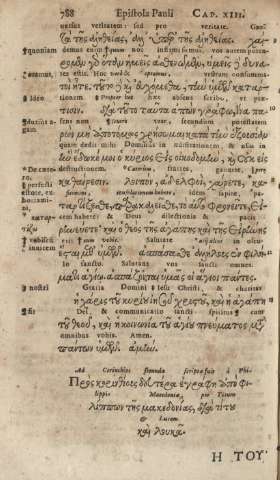 788 Epistola Pauli CAP. XIII.
versus veritatem: sed pro veritate. Gau-
τῆς ἀληθείας, ἀλλ' ὑπὲρ τῆς ἀληθείας. χαί-
quoniam demus enim nos infirmi sumus, vos autem poten-
ρομεν γὰρ ὅταν ἡμεῖς ἀσθενῶμεν, ὑμεῖς ἢ δυνα-
tes estis. Hoc & oramus, vestram consumma-
τοὶ ἦτε. τῦτο ἢ καὶ εὐχόμεθα, τὴν ὑμῶν κατάρ-
Ideo tionem hæc absens scribo, ut præ-
τισιν. τῦτο ταῦτα ἀπὼν γράφω, ἵνα πα-
sens non durius agam, secundum potestatem
ρὼν μὴ ἀποτόμως χρήσωμαι κατὰ τὴν ἐξουσίαν
quam dedit mihi Dominus in ædificationem, & non in
ἣν ἔδωκέ μοι ὁ κύριος εἰς οἰκοδομὴν, καὶ οὐκ εἰς
De cæte- destructionem. fratres, gaudete,
καθαίρεσιν. λοιπὸν, ἀδελφοὶ, χαίρετε, κα-
pacem habete: & Deus dilectionis & pacis
ρηνεύετε· καὶ ὁ θεὸς τῆς ἀγάπης καὶ τῆς εἰρήνης
vobiscum erit vobis. Salutate in oscu-
ἔσται μεθ' ὑμῶν. ἀσπάσασθε ἀλλήλους ἐν φιλή-
lo sancto. Salutant vos sancti omnes.
ματι ἁγίῳ. ἀσπάζονται ὑμᾶς οἱ ἅγιοι πάντες.
nostri Gratia Domini Jesu Christi, & charitas
ἡ χάρις τοῦ κυρίου ἰησοῦ χριστοῦ, καὶ ἡ ἀγάπη
sit Dei, & communicatio sancti spiritus cum
τοῦ θεοῦ, καὶ ἡ κοινωνία τοῦ ἁγίου πνεύματος μετὰ
omnibus vobis. Amen.
πάντων ὑμῶν. ἀμήν.
Ad Corinthios secunda scripta fuit Phi-
Πρὸς κορινθίους δευτέρα ἐγράφη ἀπὸ Φι-
lippis Macedoniæ, per Titum
λίππων τῆς μακεδονίας, διὰ τίτου
& Lucam.
καὶ λουκᾶ.
Η ΤΟΥ